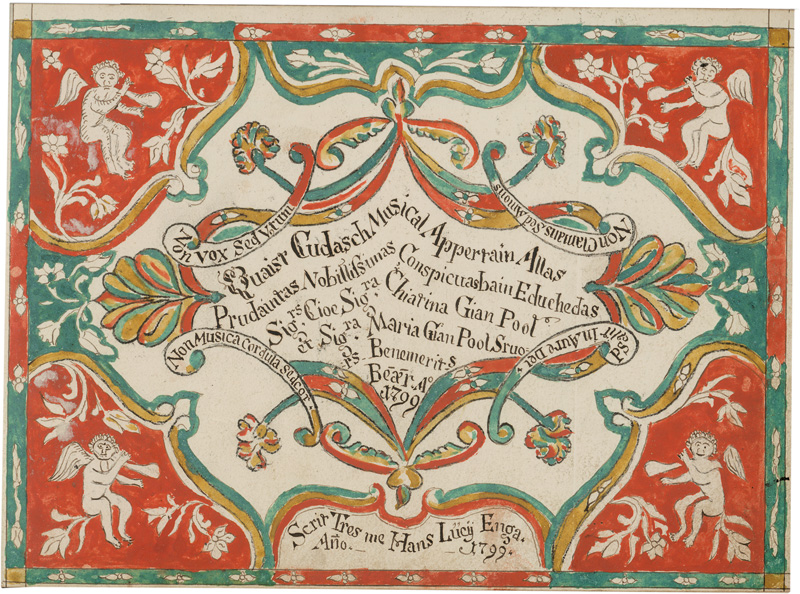 Non Vox Sed Votum
Non Clamans Sed Amans
Quaist Cudasch Musical Appertain Allas
Prudaintas Nobilissimas Conspicuas bain Educhedas
Sigrs Cioe Sigra Chiatina Gian Pool
et Sigra Maria Gian Pool Sruo
Benemerits
Bear. Ao
1799
Non Musica Cordula sed Cor.
Psalit In Aure Dei.
Scrit Tres me Hans Lucÿ Enga.
Año. 1799.